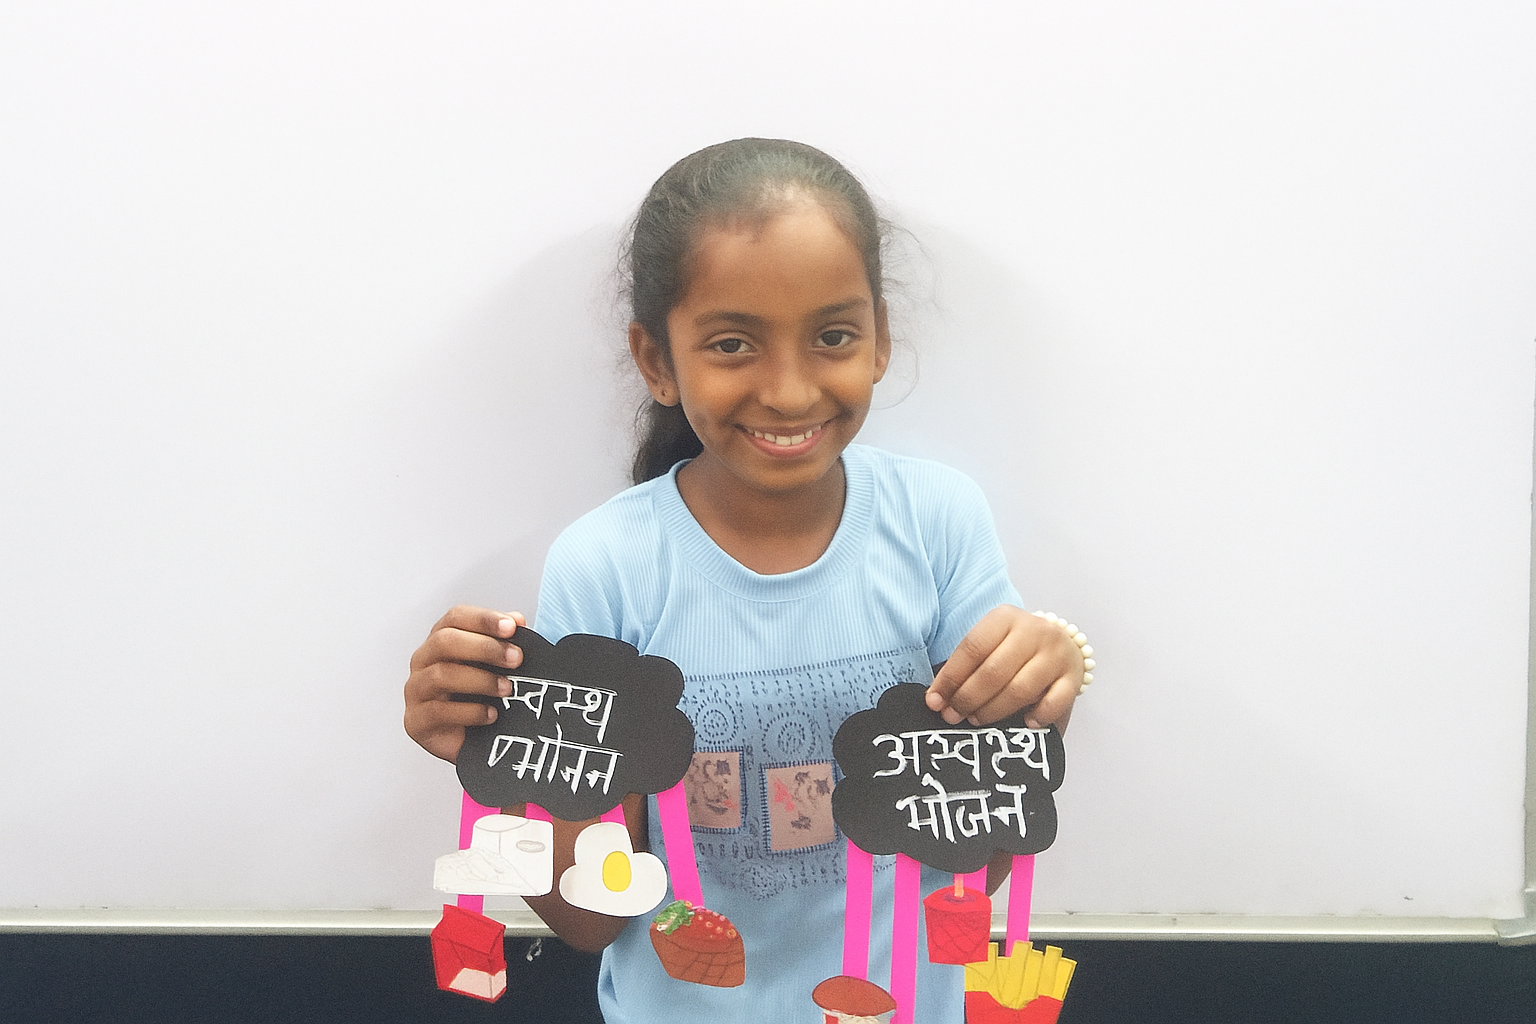 स्वस्थ
भोजन
अस्वस्थ
भोजन